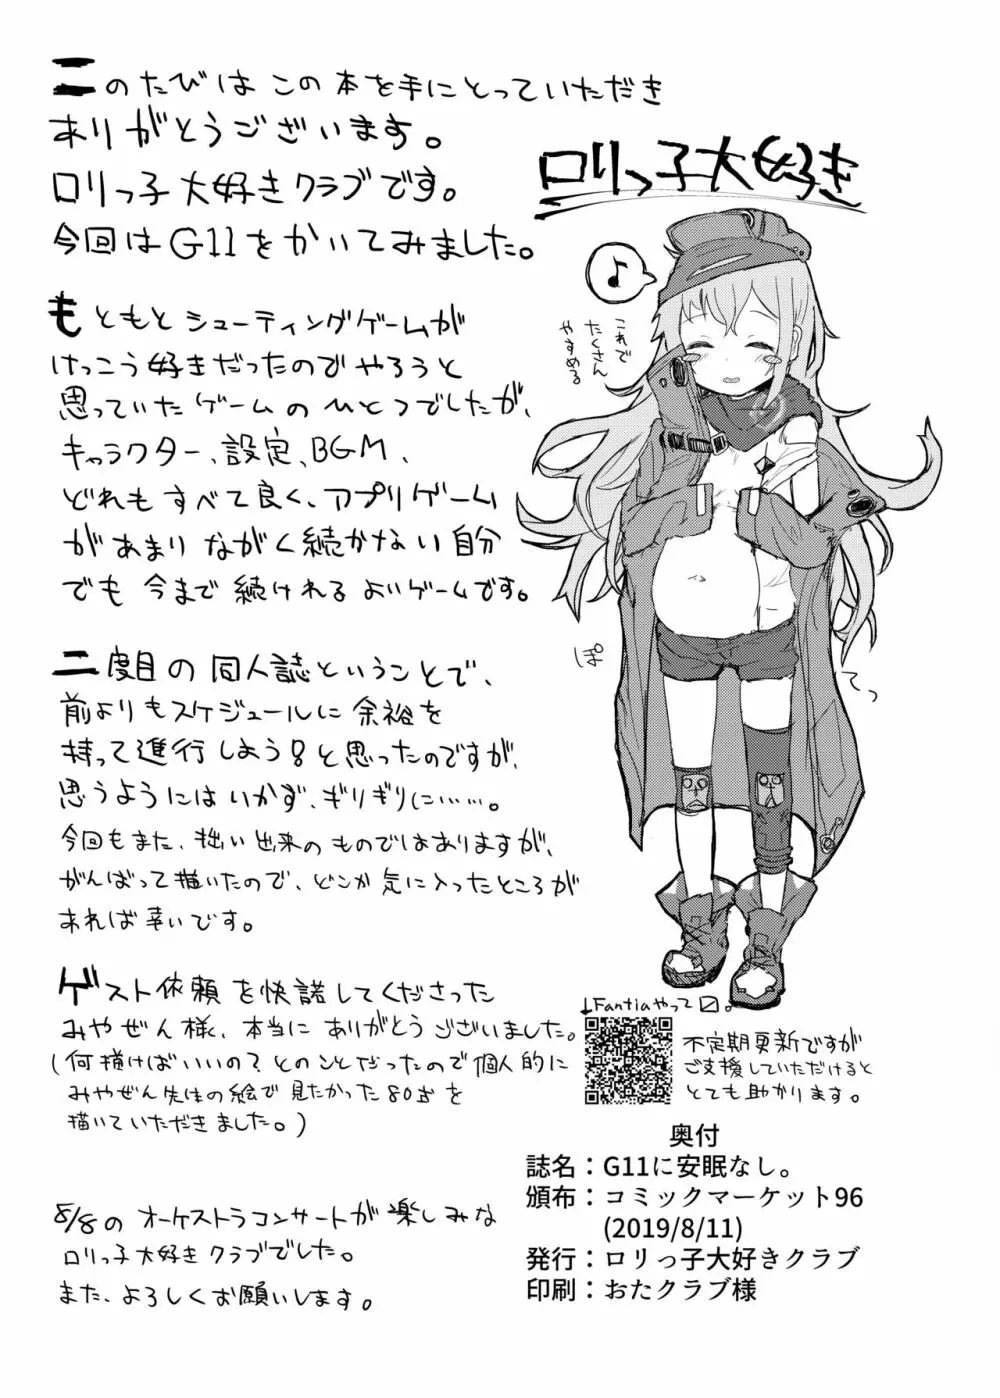 このたびは この本を手にとっていただき
ありがとうございます。
ロリっ子大好きクラブです。
今回はG11をかいてみました。
もともとシューティングゲームが
けっこう好きだったのでやろうと
思っていたゲームのひとつでしたが、
キャラクター、設定、BGM、
どれもすべて良く、アプリゲーム
があまりながく続かない自分
でも今まで続けれるよいゲームです。
二度目の同人誌ということで、
前よりもスケジュールに余裕を
持って進行しよう!と思ったのですが、
思うようにはいかず、ギリギリに……。
今回もまた、拙い出来のものではありますが、
がんばって描いたので、どこか気に入ったところが
あれば幸いです。
ゲスト依頼を快諾してくださった
みやぜん様、本当にありがとうございました。
(何描けばいいの?とのことだったので個人的に
みやぜん先生の絵で見たかった80式を
描いていただきました。)
8/8のオーケストラコンサートが楽しみな
ロリっ子大好きクラブでした。
また、よろしくお願いします。
ロリっ子大好き
♪
これで
たくさん
やすめる
ぽ
てっ
↓Fantiaやって〼。
不定期更新ですが
ご支援していただけると
とても助かります。
奥付
誌名：G11に安眠なし。
頒布：コミックマーケット96
(2019/8/11)
発行：ロリっ子大好きクラブ
印刷：おたクラブ様